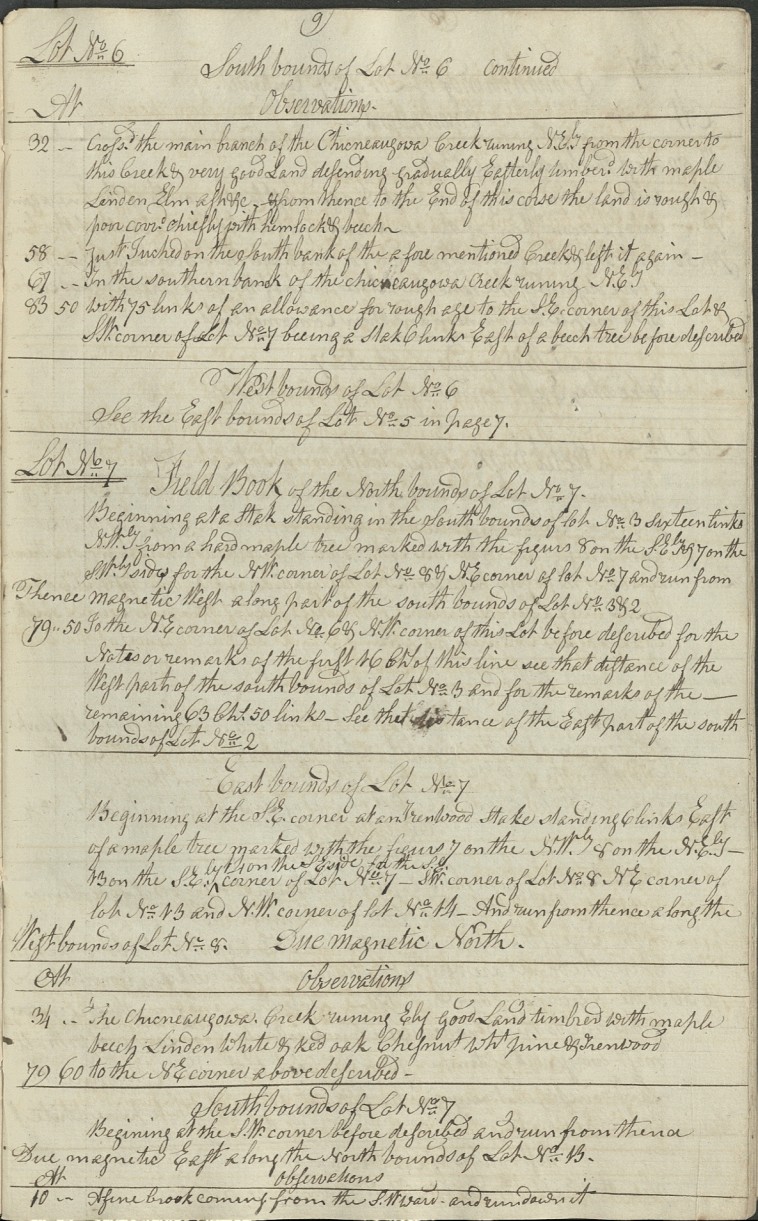 9
Lot No. 6
South bounds of Lot No. 6 continued
At Observations-
32 -- Crossd. the main branch of the Chicneaugowa Creek runing N.E.ly from the corner to
this Creek & very good Land desending gradually Easterly timberd. with maple
Linden Elm ash &c. & from thence to the End of this corse the land is rough &
poor covrd. chiefly with hemlock & beech-
58 -- Just Tuched on the South bank of the afore mentioned Creek & left it again -
67 -- In the southern bank of the chicneaugowa Creek runing N.E.ly
83 50 with 75 links of an allowance for rough age to the S.E. corner of this Lot &
S.W. corner of Lot No. 7 beeing a stak 6 links East of a beech tree before described
West bounds of Lot No. 6
See the East bounds of Lot No. 5 in page 7.
Lot No. 7
Field Book of the North bounds of Lot No. 7.
Beginning at a Stak standing in the South bounds of lot No. 3 sixteen links
N.W.ly from a hard maple tree marked with the figurs 8 on the S.E.ly & 7 on the
S.W.ly side for the N.W. corner of Lot No. 8 & N.E. corner of lot No. 7 and run from
Thence magnetic West along part of the south bounds of Lot No. 3 & 2
79 .. 50 To the N.E. corner of Lot No. 6 & N.W. corner of this Lot before described for the
Notes or remarks of the first 16 Chs. of this line see that distance of the
West part of the south bounds of Lot No. 3 and for the remarks of the -
remaining 63 Chs. 50 links - See that distance of the East part of the south
bounds of Lot No. 2
East bounds of Lot No. 7
Beginning at the S.E. corner at an Irenwood Stake standing 6 links East
of a maple tree marked with the figurs 7 on the N.W.ly 8 on the N.E.ly -
on the S.E. side for the S.E.
13 on the S.E.ly corner of Lot No. 7 - S.W. corner of Lot No. 8 N.E. corner of
lot No. 13 and N.W. corner of lot No. 14 - And run from thence along the
West bounds of Lot No. 8. Due magnetic North.
At Observations
34 .- The Chicneaugowa Creek runing Ely Good Land timbred with maple
beech Linden White & Red oak Chesnut wht pine & Irenwood
79 60 to the N.E. corner above described -
South bounds of Lot No. 7
Begining at the S.W. corner before described and run from thence
Due magnetic East along the North bounds of Lot No. 13.
At Observations
10 -- A fine brook coming from the S.W. ward - and run down it